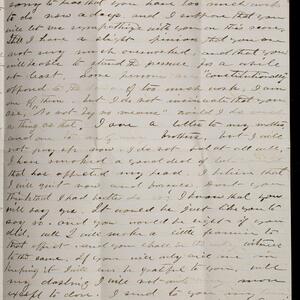 sorry to hear that you have too much work
to do now a days and I suppose that you
will let me sympathize with you on this score
still I have a slight suspicion that you are
not very much overworked, and that you
will be able to stand the pressure for a while
at least. Some persons are "constitutionally
opposed" to the of too much work, I am
one of them, but I do not insinuate that you
are, "no not by no means" would I do such
a thing as that. I owe a letter to my mother,
and one to my brother, but I will
not pay up now. I do not feel at all well,
I have smoked a good deal of late
that has affected my head. I believe that
I will quit now and forever. Don't you
think that I had better do so, I know that you
will say yes. It would be just like you to
say so and you would be right if you
did, well I will make a little promise to
that effect and you shall be the witness
to the same. If you will only aid me in
keeping it I will be grateful to you. Well
my darling I will not more
except to close. I send to you my